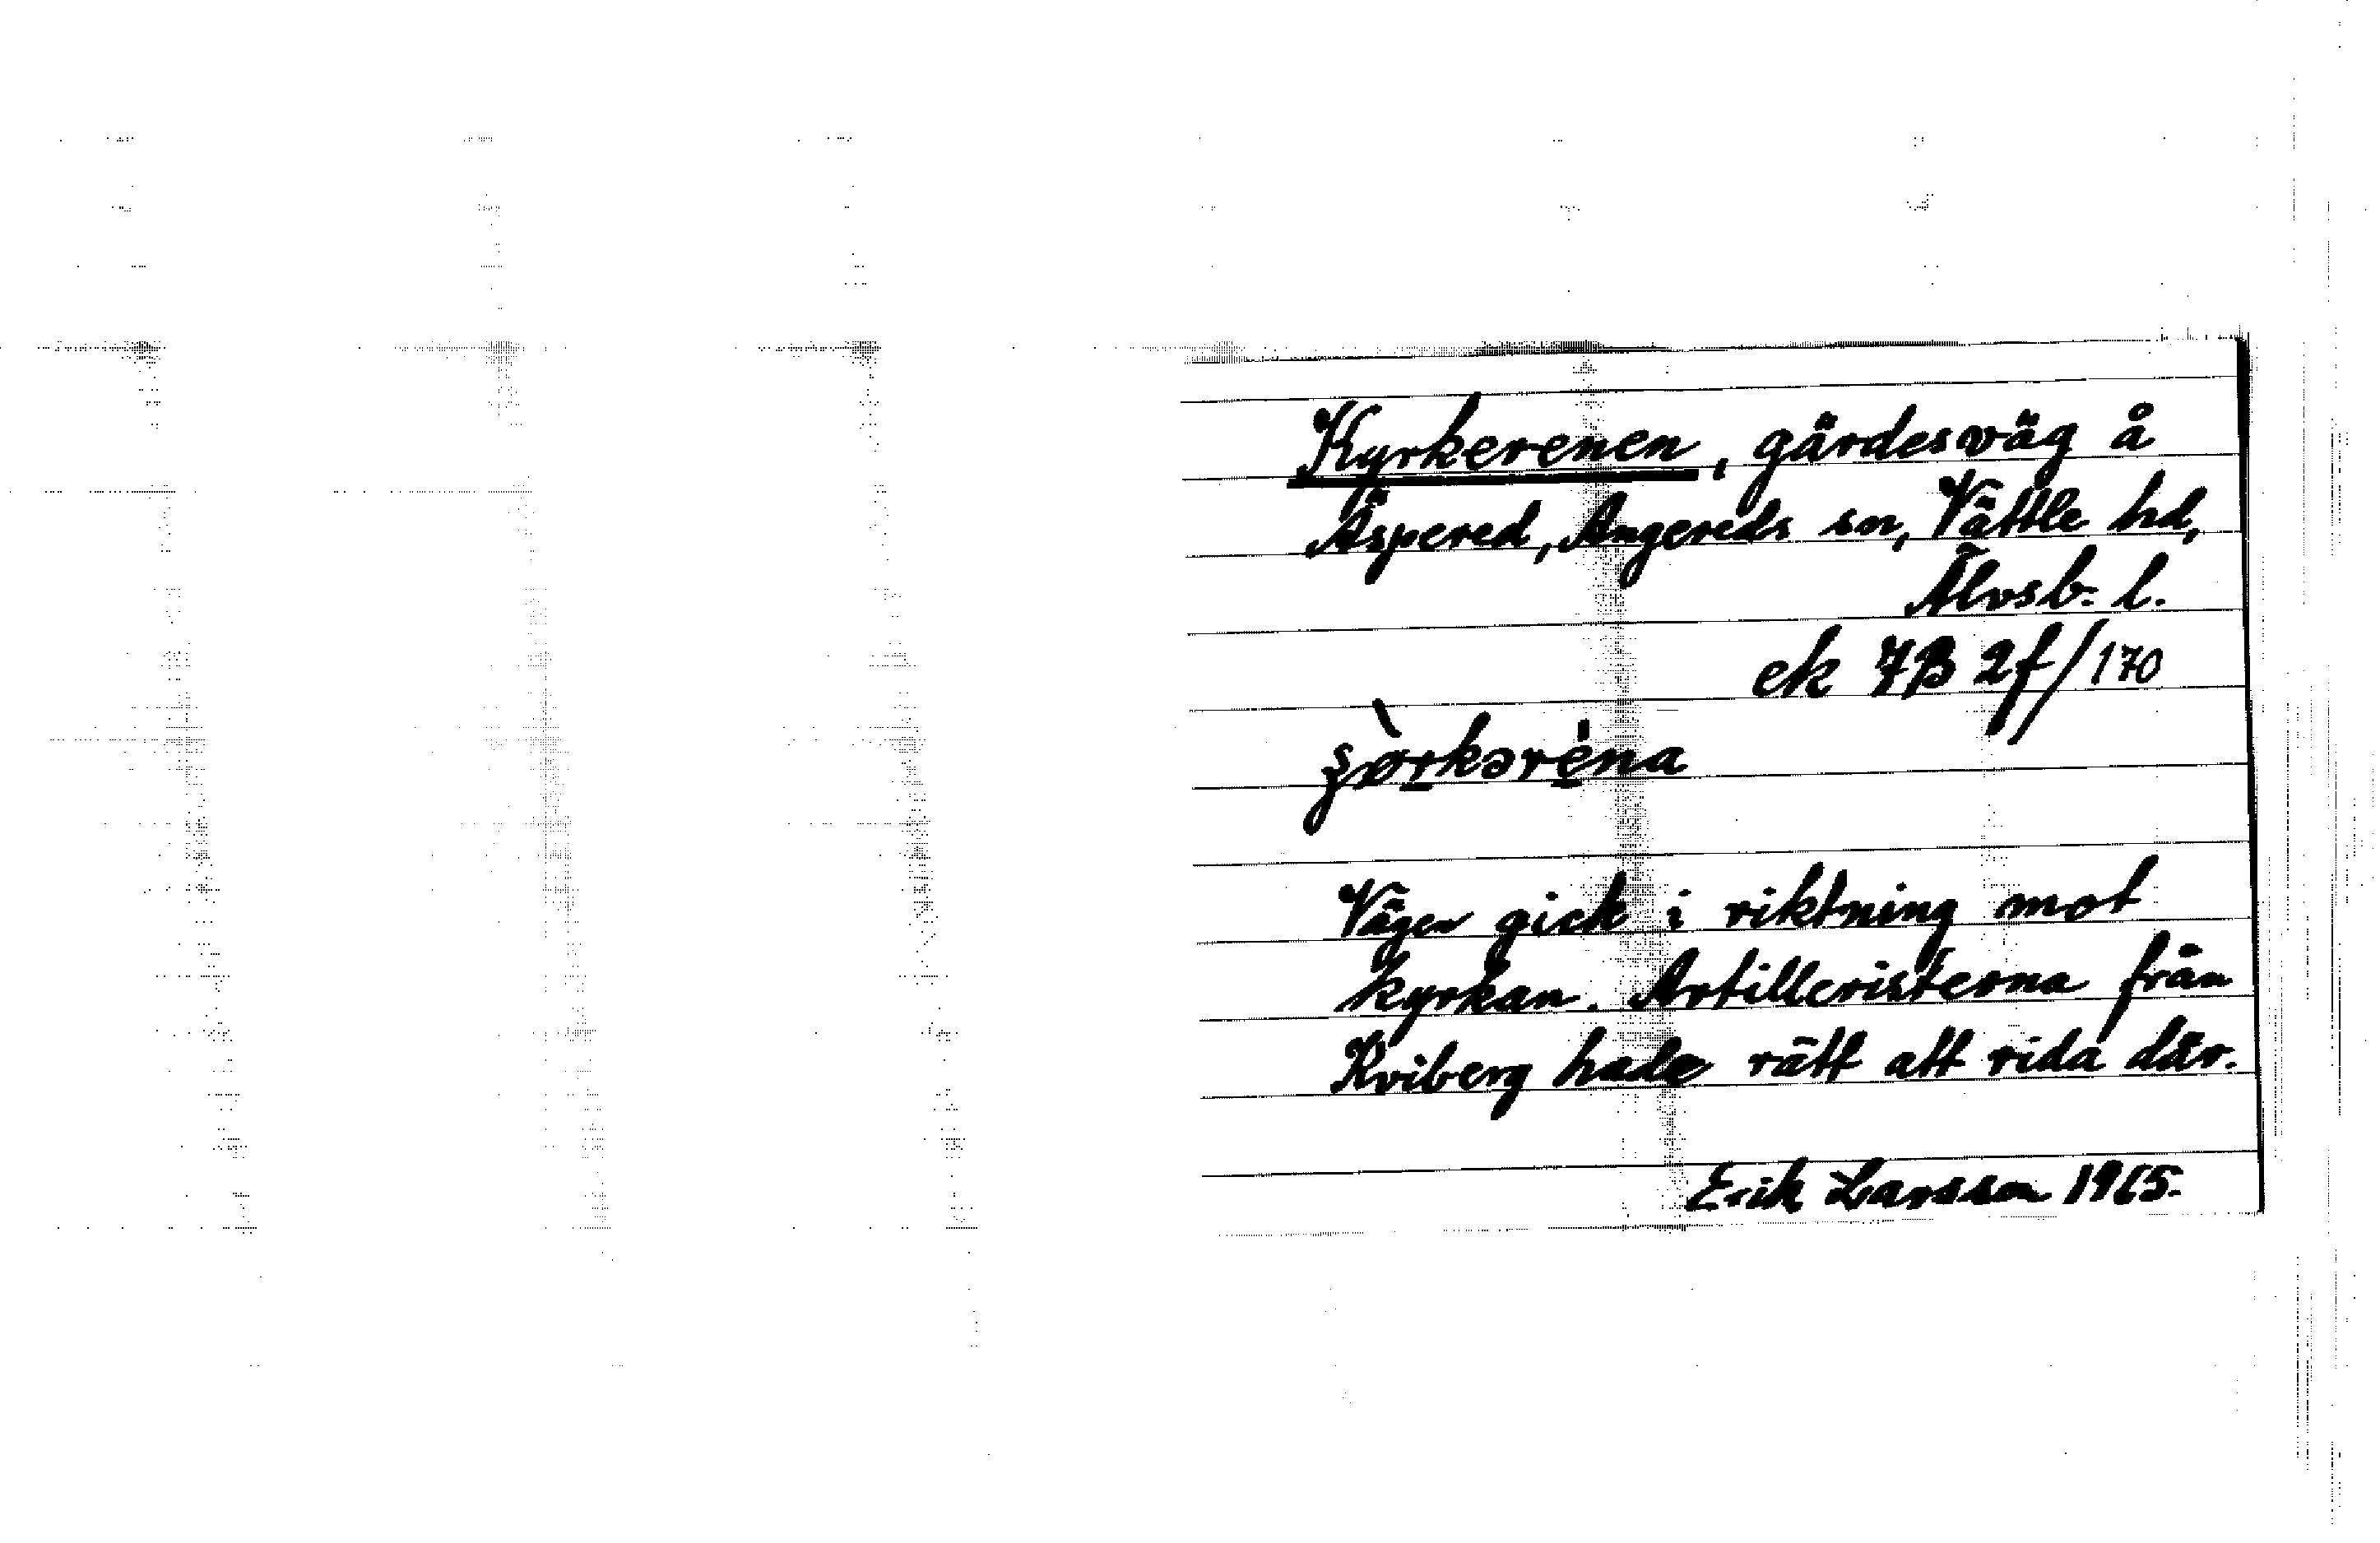 Kyrkerenen, gärdesväg å
Äspered, Angereds sn, Vättle hd,
Älvsb. l.
ek 7B 2f/170
Vägen gick i riktning mot
kyrkan. Artilleristerna från
Kviberg hade rätt att rida där.
Erik Larsson 1965.